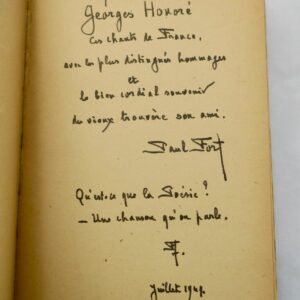 Georges Honoré
Ces chants de France,
avec les plus distingués hommages
et
le bien cordial souvenir
du vieux trouvère son ami.
Paul Fort
Qu'est-ce que la Poésie ?
– Une chanson qu'on parle.
PF.
Juillet 1949.